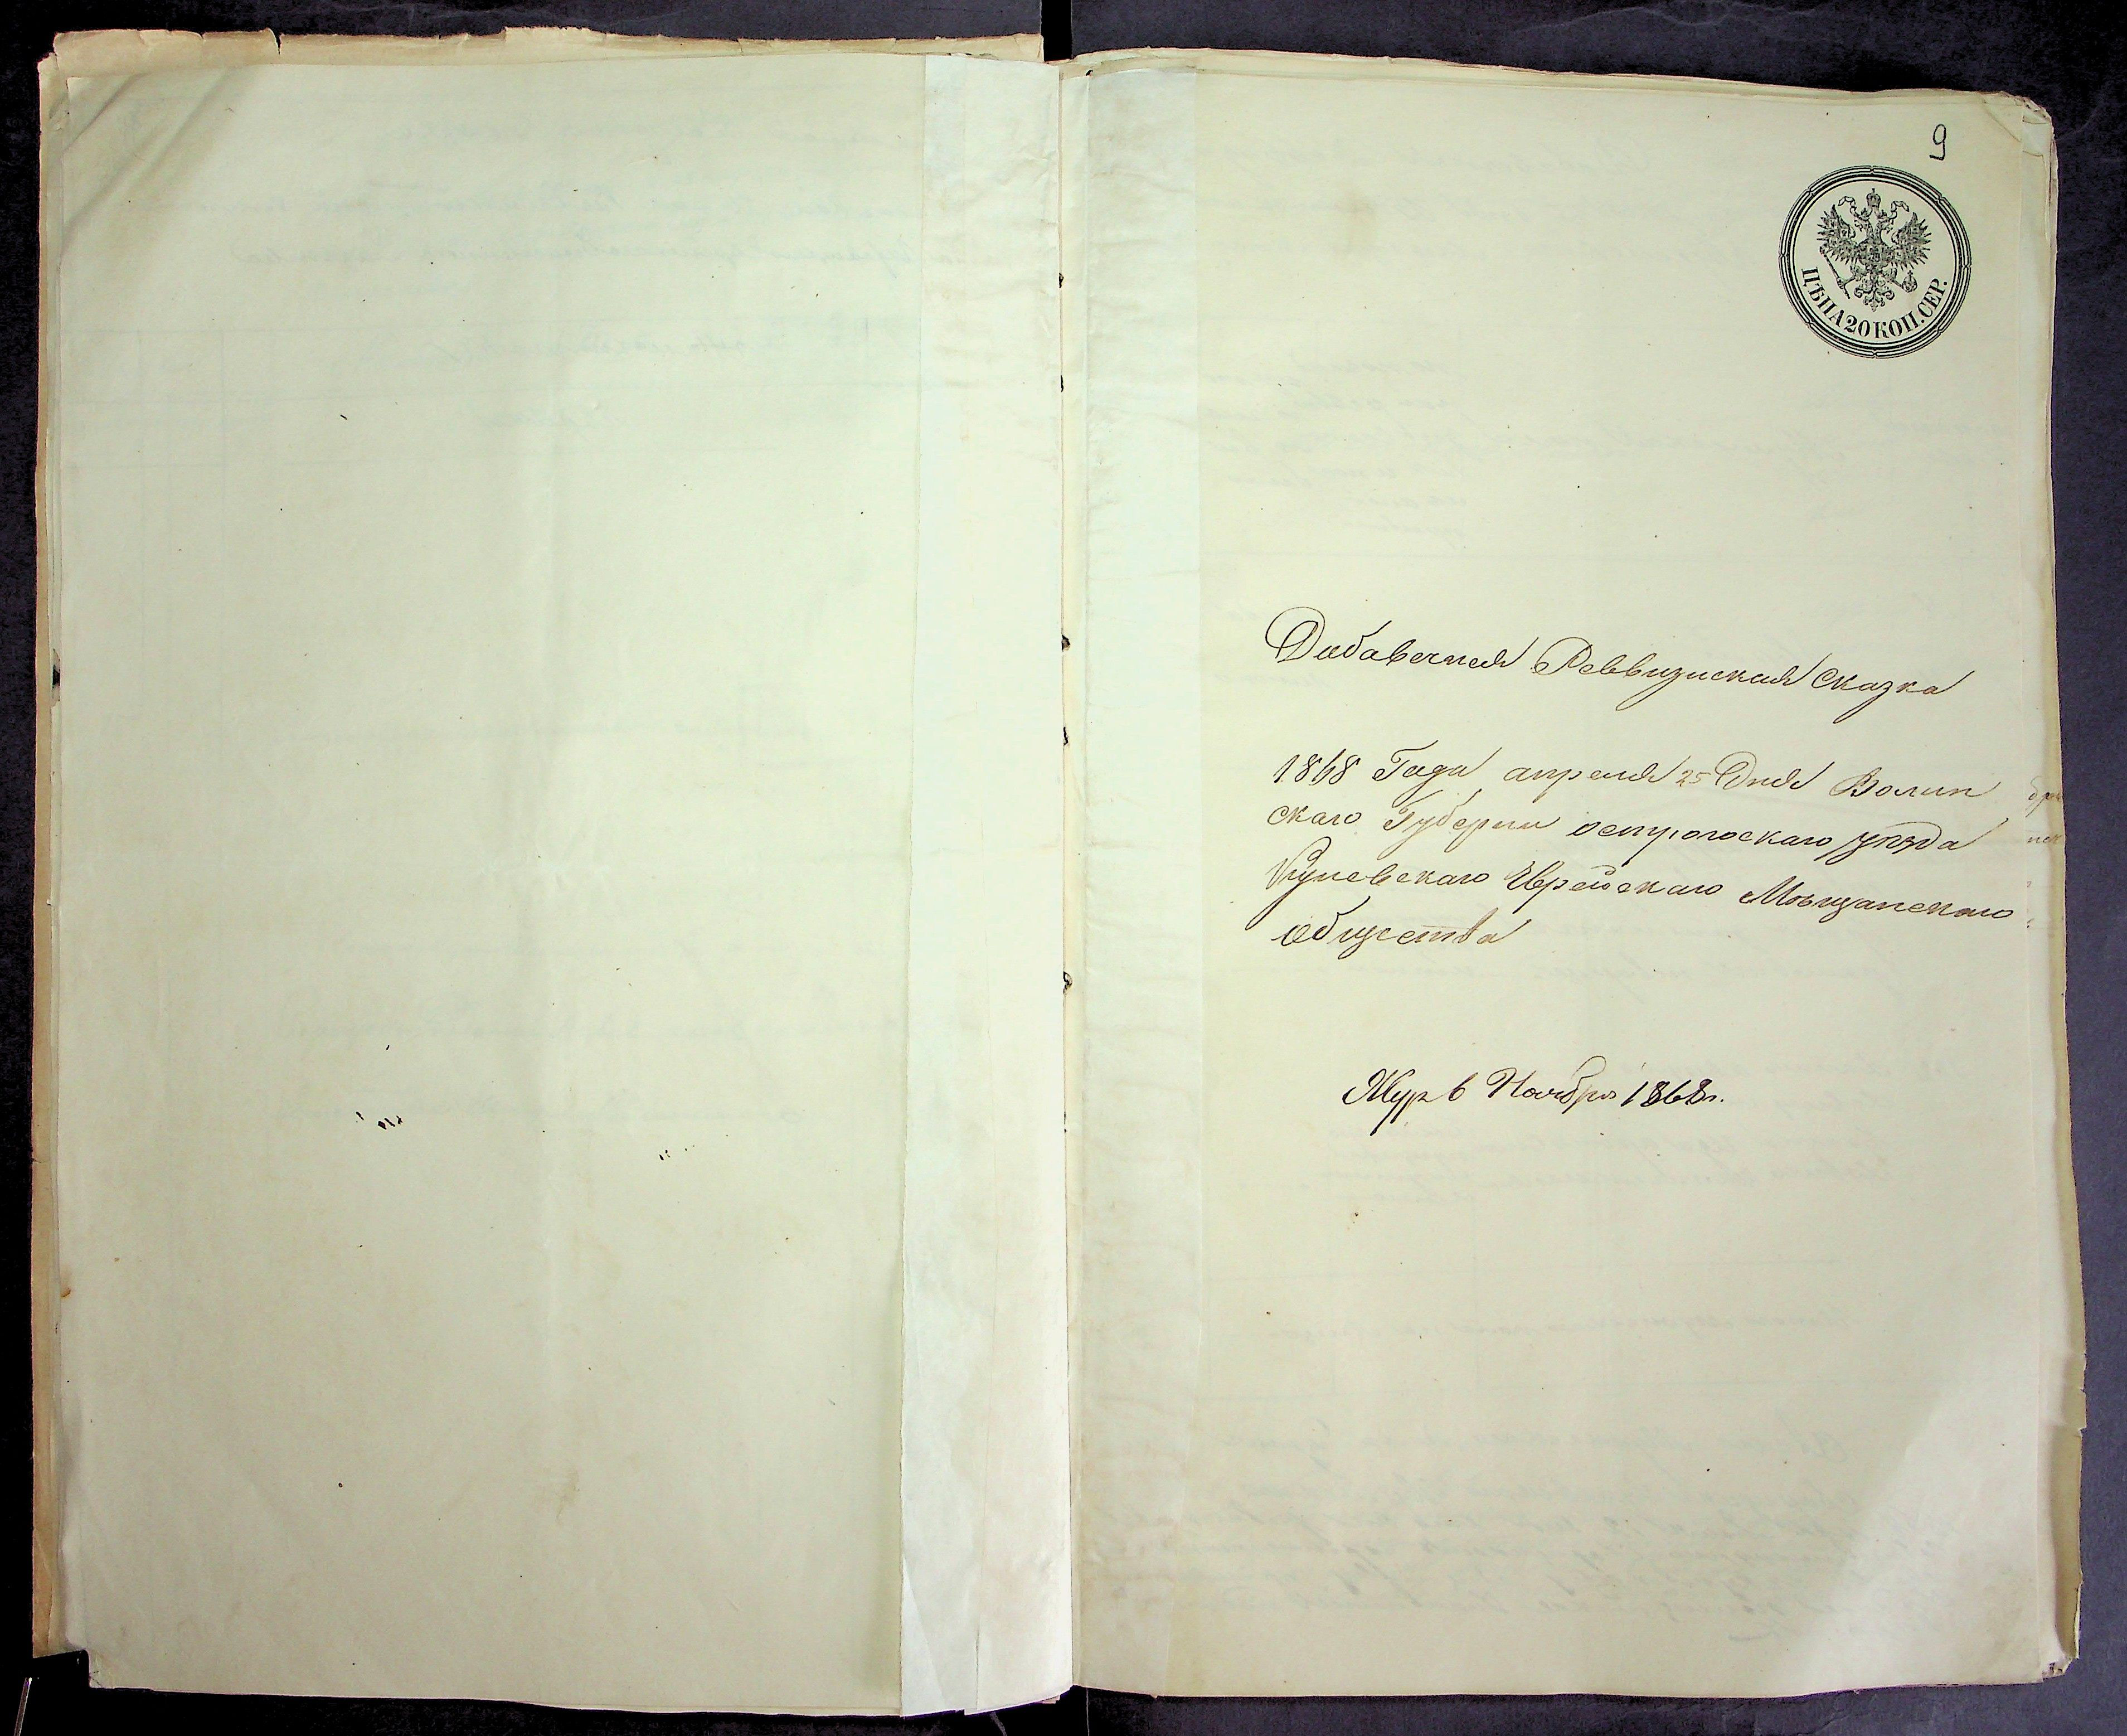 9
ЦѢНА 20 КОП. СЕР.
Добавочная Реввизиская Сказка
1868 Года апреля 25 Дня Волин
скаго Губернии острогоскаго уѣзда
Куневскаго Еврейскаго Мѣщанскаго
общества
Жур 6 Ноября 1868 г.